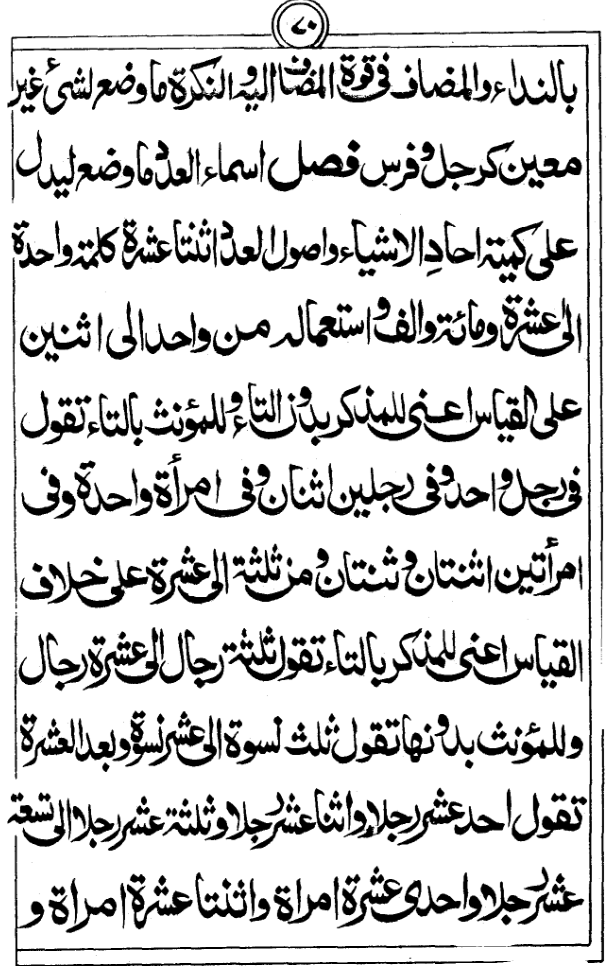 ٧٠
بالنداء والمضاف فی قوة المضاف الیه والنکرة ما وضع لشیٔ غیر
معین کرجل وفرس فصل اسماء العدد ما وضع لیدل
علی کمیتہ احادِ الاشیاء واصول العدد اثنتا عشرة کلمتہ واحدة
الی عشرة ومائة والف واستعماله من واحد الی اثنین
علی القیاس اعنی للمذکر بدون التاء وللمؤنث بالتاء تقول
فی رجل واحد وفی رجلین اثنان وفی امرأة واحدة وفی
امرأتین اثنتان وثنتان ومن ثلثة الی عشرة علی خلاف
القیاس اعنی للمذکر بالتاء تقول ثلثة رجال الی عشرة رجال
وللمؤنث بدونها تقول ثلث نسوة الی عشر نسوة وبعد العشرة
تقول احد عشر رجلا واثنا عشر رجلا وثلثة عشر رجلا الی تسعتہ
عشر رجلا واحدی عشرة امراة واثنتا عشرة امراة و